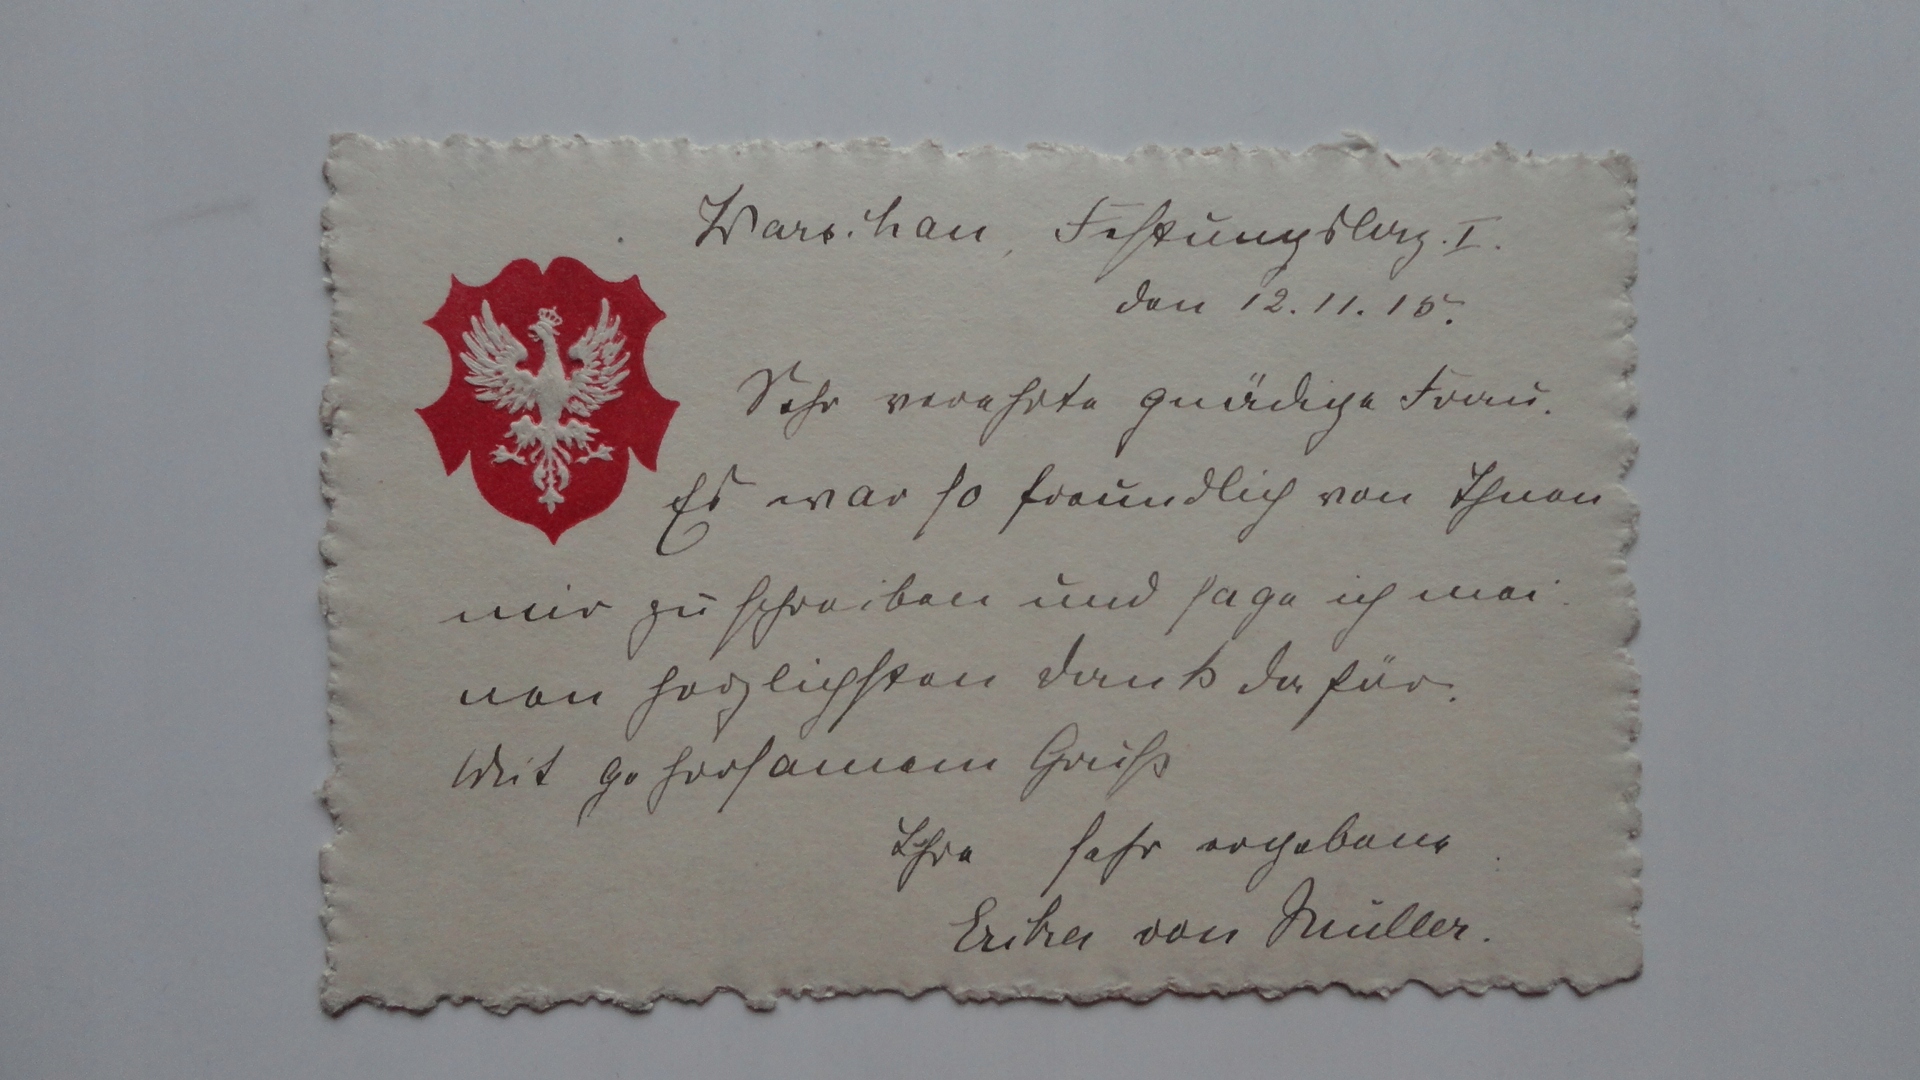 Warschau, Festungslaz. I.
den 12.11.15.
Sehr verehrte gnädige Frau.
Es war so freundlich von Ihnen
mir zu schreiben und sage ich mei-
nen herzlichsten Dank dafür.
Mit gehorsamem Gruß
Ihre sehr ergebene
Erika von Müller.